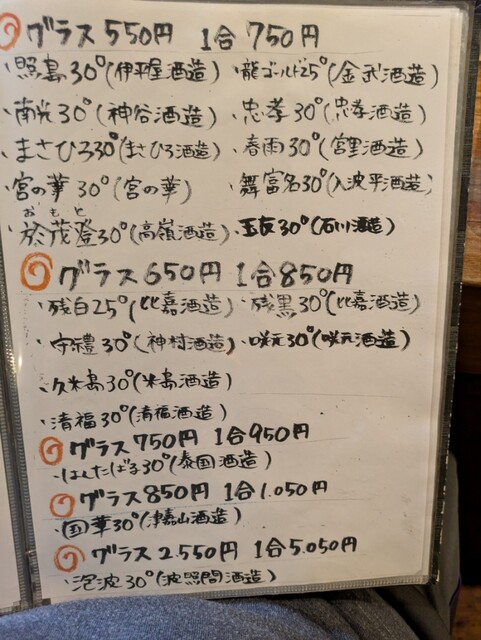 グラス550円 1合750円
・照島30°(伊平屋酒造) ・龍ゴールド25°(金武酒造)
・南光30°(神谷酒造) ・忠孝30°(忠孝酒造)
・まさひろ30°(まさひろ酒造) ・春雨30°(宮里酒造)
・宮の華30°(宮の華) ・舞富名30°(入波平酒造)
おもと
・於茂登30°(高嶺酒造) ・玉友30°(石川酒造)
グラス650円 1合850円
・残白25°(比嘉酒造) ・残黒30°(比嘉酒造)
・守禮30°(神村酒造) ・咲元30°(咲元酒造)
・久米島30°(米島酒造)
・清福30°(清福酒造)
グラス750円 1合950円
・はんたばる30°(泰国酒造)
グラス850円 1合1.050円
・国華30°(津嘉山酒造)
グラス2.550円 1合5.050円
・泡波30°(波照間酒造)